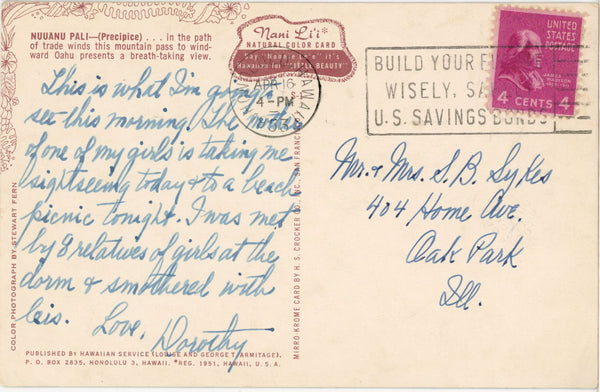 NUUANU PALI—(Precipice) . . . in the path
of trade winds this mountain pass to wind-
ward Oahu presents a breath-taking view.
Nani Li'i*
NATURAL COLOR CARD
Say, "Nannie Lee" it's
Hawaiian for "LITTLE BEAUTY"
APR 16
4 - PM
BUILD YOUR
WISELY,
U.S. SAVINGS BONDS
UNITED
STATES
POSTAGE
JAMES
MADISON
4 CENTS 4
This is what I'm going to
see this morning. The mother
of one of my girls is taking me
sightseeing today & to a beach
picnic tonight. I was met
by 8 relatives of girls at the
dorm & smothered with
leis. Love,
Dorothy
Mr. & Mrs. S. B. Sykes
404 Home Ave.
Oak Park
Ill.
COLOR PHOTOGRAPH BY STEWART FERN
MIRRO-KROME CARD BY H. S. CROCKER CO., INC., SAN FRANCISCO
PUBLISHED BY HAWAIIAN SERVICE (LOUISE AND GEORGE T. ARMITAGE).
P. O. BOX 2835, HONOLULU 3, HAWAII. *REG. 1951, HAWAII, U. S. A.